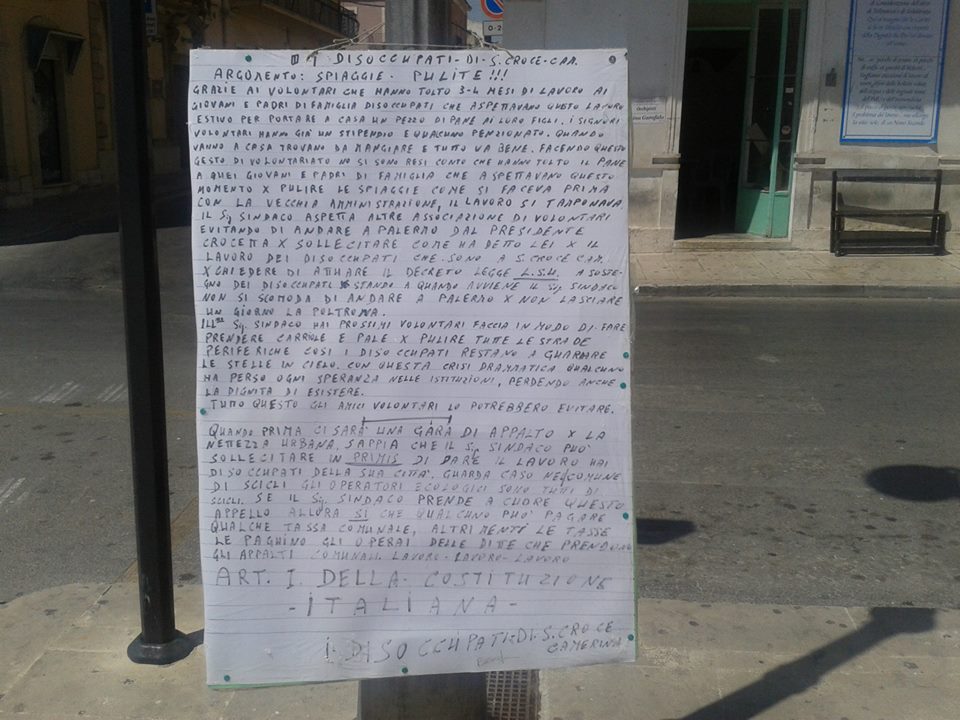 DISOCCUPATI-DI-S.CROCE-CAM.
ARGOMENTO: SPIAGGIE- PULITE!!!
GRAZIE AI VOLONTARI CHE HANNO TOLTO 3-4 MESI DI LAVORO AI
GIOVANI E PADRI DI FAMIGLIA DISOCCUPATI CHE ASPETTAVANO QUESTO LAVORO
ESTIVO PER PORTARE A CASA UN PEZZO DI PANE AI LORO FIGLI. I SIGNORI
VOLONTARI HANNO GIA' UN STIPENDIO E QUALCUNO PENZIONATO. QUANDO
VANNO A CASA TROVANO DA MANGIARE E TUTTO VA BENE. FACENDO QUESTO
GESTO DI VOLONTARIATO NO SI SONO RESI CONTO CHE HANNO TOLTO IL PANE
A QUEI GIOVANI E PADRI DI FAMIGLIA CHE ASPETTAVANO QUESTO
MOMENTO X PULIRE LE SPIAGGIE COME SI FACEVA PRIMA
CON LA VECCHIA AMMINISTRAZIONE, IL LAVORO SI TAMPONAVA
IL Sig SINDACO ASPETTA ALTRE ASSOCIAZIONE DI VOLONTARI
EVITANDO DI ANDARE A PALERMO DAL PRESIDENTE
CROCETTA X SOLLECITARE COME HA DETTO LEI X IL
LAVORO DEI DISOCCUPATI CHE SONO A S.CROCE CAM.
X CHIEDERE DI ATTUARE IL DECRETO LEGGE L.S.U. A SOSTE-
GNO DEI DISOCCUPATI STANDO A QUANDO AVVIENE IL Sig SINDACO
NON SI SCOMODA DI ANDARE A PALERMO X NON LASCIARE
UN GIORNO LA POLTRONA.
ILLmo Sig. SINDACO HAI PROSSIMI VOLONTARI FACCIA IN MODO DI FARE
PRENDERE CARRIOLE E PALE X PULIRE TUTTE LE STRADE
PERIFERICHE COSI I DISOCCUPATI RESTANO A GUARDARE
LE STELLE IN CIELO. CON QUESTA CRISI DRAMMATICA QUALCUNO
HA PERSO OGNI SPERANZA NELLE ISTITUZIONI, PERDENDO ANCHE
LA DIGNITA DI ESISTERE.
TUTTO QUESTO GLI AMICI VOLONTARI LO POTREBBERO EVITARE.
QUANDO PRIMA CI SARA' UNA GARA DI APPALTO X LA
NETTEZZA URBANA, SAPPIA CHE IL Sig SINDACO PUO'
SOLLECITARE IN PRIMIS DI DARE IL LAVORO HAI
DISOCCUPATI DELLA SUA CITTA'. GUARDA CASO NEL COMUNE
DI SCICLI GLI OPERATORI ECOLOGICI SONO TUTTI DI
SCICLI. SE IL Sig. SINDACO PRENDE A CUORE QUESTO
APPELLO ALLORA SI CHE QUALCUNO PUO' PAGARE
QUALCHE TASSA COMUNALE, ALTRIMENTI LE TASSE
LE PAGHINO GLI OPERAI DELLE DITTE CHE PRENDONO
GLI APPALTI COMUNALI. LAVORO-LAVORO-LAVORO
ART. I. DELLA COSTITUZIONE
-ITALIANA-
I DISOCCUPATI-DI-S.CROCE
CAMERINA